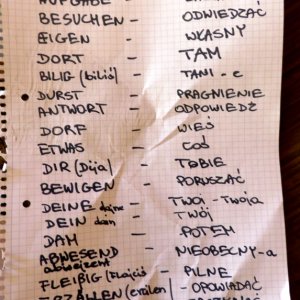 AUFGABE -
BESUCHEN - ODWIEDZAĆ
EIGEN - WŁASNY
DORT - TAM
BILIG (biliś) - TANI - e
DURST - PRAGNIENIE
ANTWORT - ODPOWIEDŹ
DORF - WIEŚ
ETWAS - COŚ
DIR (Dija) - TOBIE
BEWIGEN - PORUSZAĆ
DEINE dajne - TWOI - TWOJA
DEIN dain - TWÓJ
DAM - POTEM
ABWESEND - NIEOBECNY-a
FLEIßIG (Flajsiś - PILNE
ERZÄHLEN (ercelen) - OPOWIADAĆ